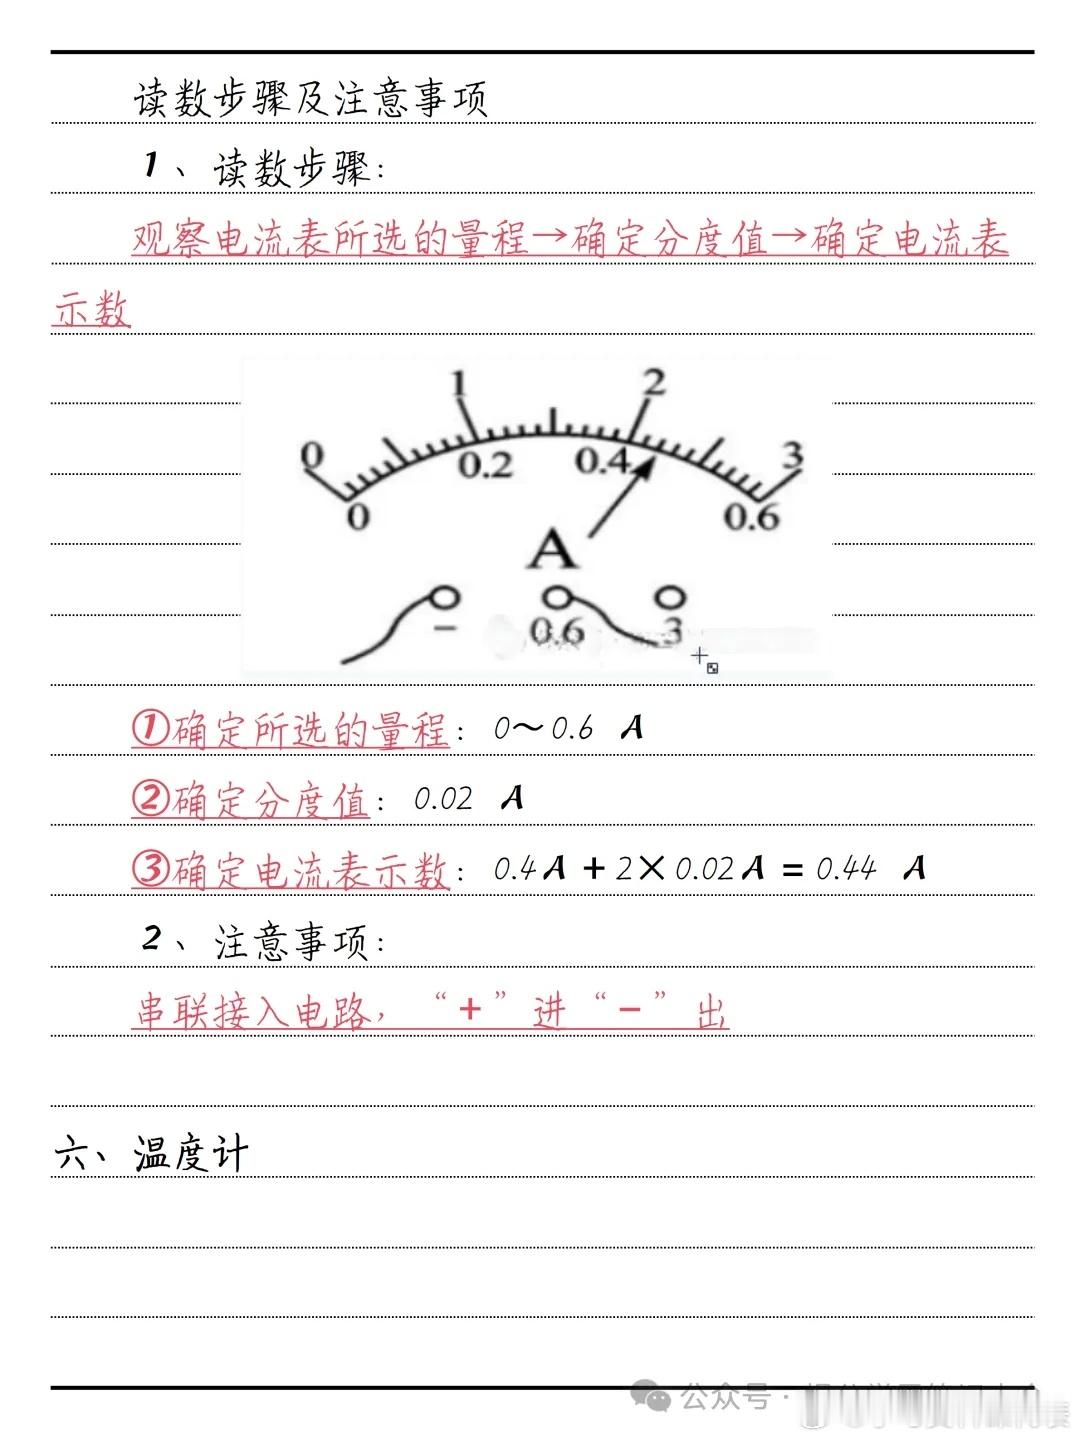 读数步骤及注意事项
1、读数步骤：
观察电流表所选的量程→确定分度值→确定电流表
示数
1 2
0 3
0.2 0.4
0 0.6
A
- 0.6 3
①确定所选的量程：0～0.6 A
②确定分度值：0.02 A
③确定电流表示数：0.4A+2×0.02A=0.44 A
2、注意事项：
串联接入电路，“+”进“-”出
六、温度计
公众号·